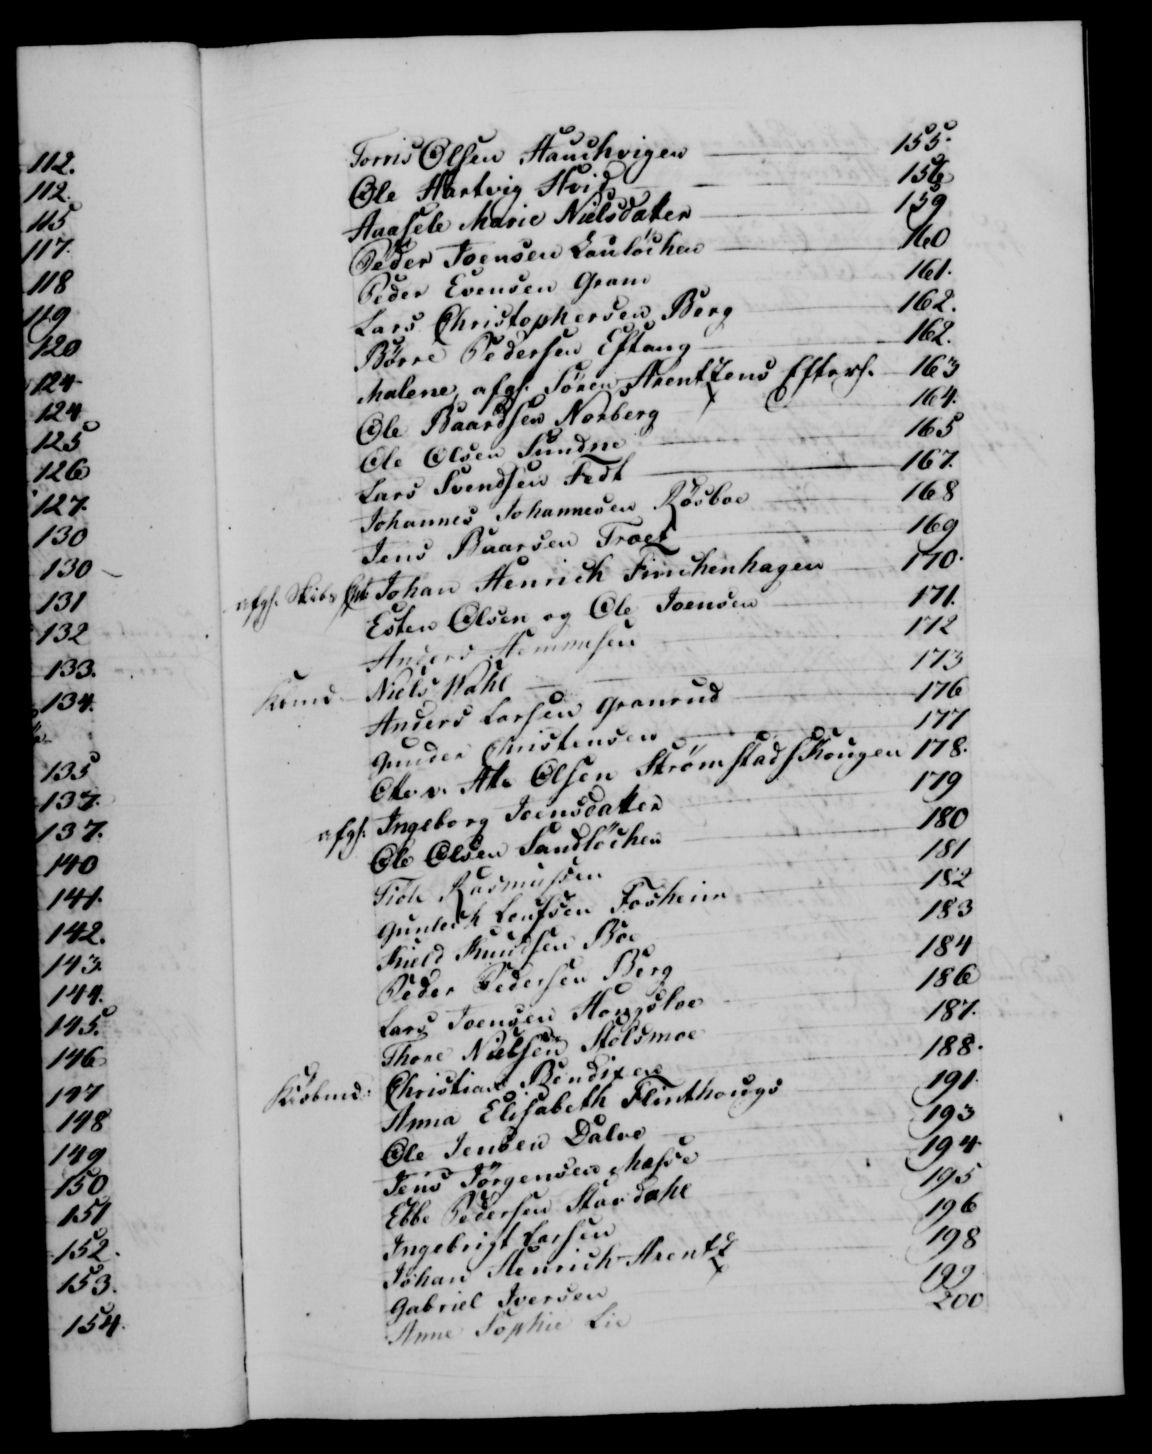 112.
112.
115
117.
118
119
120
124
124
125
126
127.
130
130
131
132
133.
134.
135
137.
137.
140
141.
142.
143.
144.
145.
146
147
148
149
150
151
152.
153.
154.
Torris Olsen Hauchvigen 155.
Ole Hartvig Hviid 156
Aasele Marie Nielsdatter 159
Peder Joensen Lauløchen 160
Peder Evensen Gram 161.
Lars Christophersen Berg 162.
Børre Pedersen Eftang 162.
Malene, afg. Søren Arentzens Efterl. 163
Ole Baardsen Norberg 164.
Ole Olsen Sundne 165
Lars Svendsen Fedt 167.
Johannes Johannesen Røsboe 168
Jens Baarsen Troes 169
afg. Skibs Johan Henrich Finchenhagen 170.
Esten Olsen og Ole Joensen 171.
Anders Hemmesen 172
Niels Wahl 173
Anders Larsen Granrud 176
Gunder Christensen 177
Olsen Strømstadskougen 178.
afg. Ingeborg Joensdatter 179
Ole Olsen Sandløchen 180
Rasmussen 181
Gunlech Leufsen Fosheim 182
Kield Knudsen Boe 183
Peder Pedersen Berg 184
Lars Joensen Haugsloe 186
Thore Nielsen Stolsmoe 187.
Kiøbmd. Christian Bendixen 188.
Anna Elisabeth Flinthougs 191
Ole Jensen Dalve 193
Jens Jørgensen Masse 194
Ebbe Pedersen Stavdahl 195
Ingebrigt Larsen 196
Johan Henrich Arentz 198
Gabriel Iversen 199
Anne Sophie Lie 200